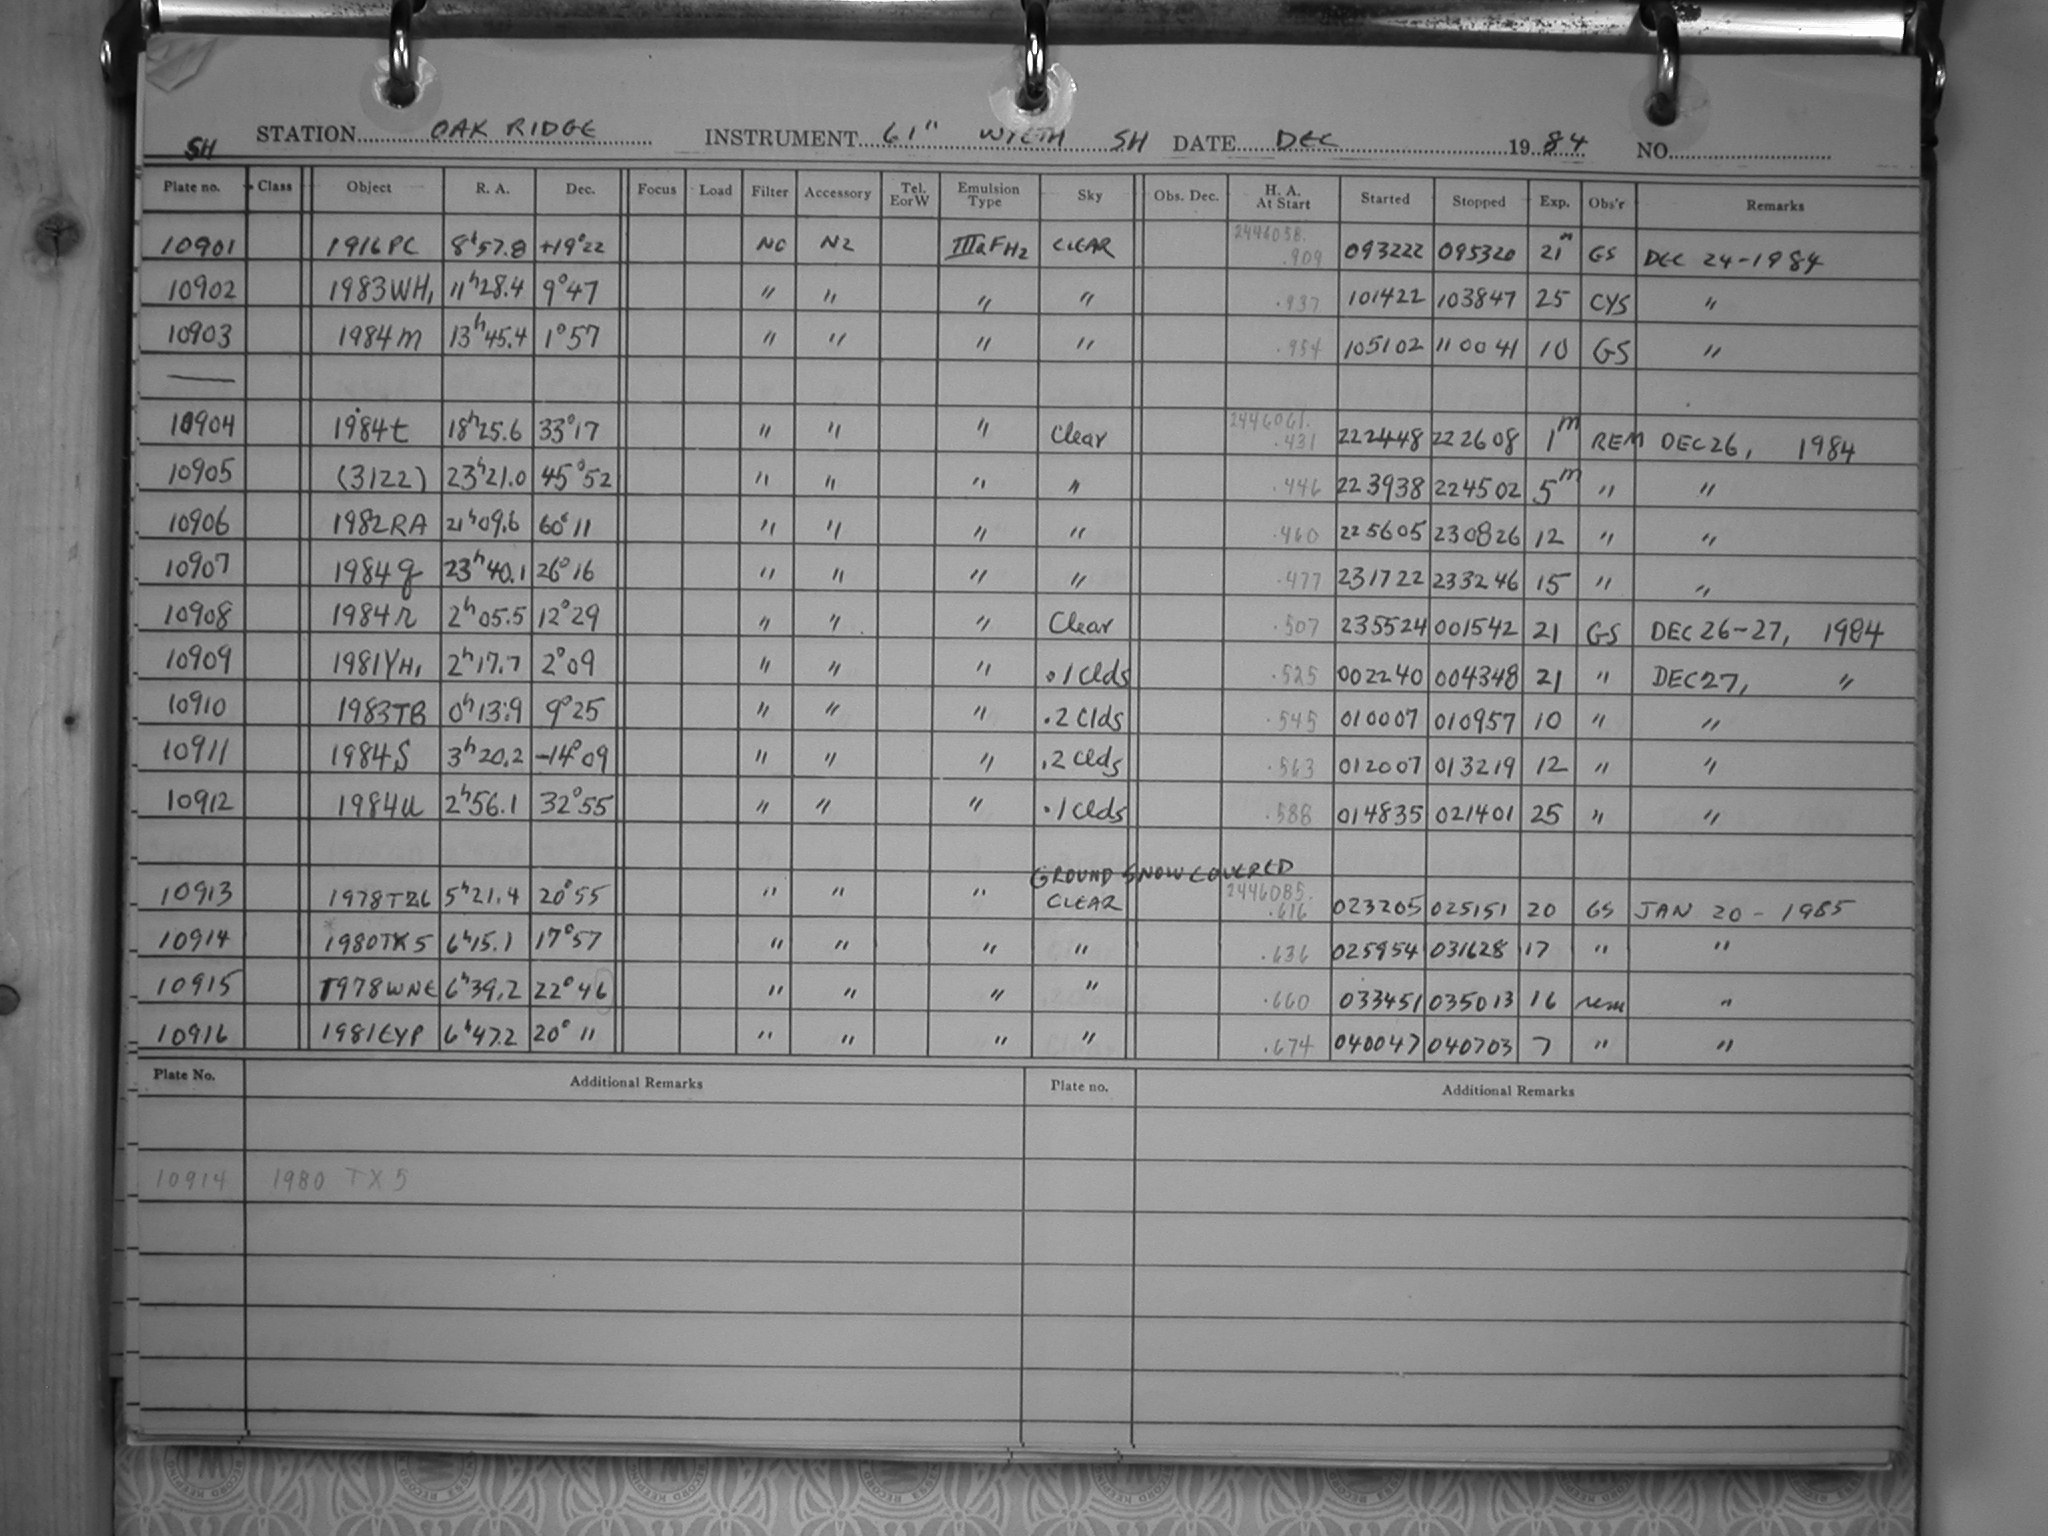 SH STATION OAK RIDGE INSTRUMENT 61" WYETH SH DATE DEC 1984 NO.
Plate no. Class Object R. A. Dec. Focus Load Filter Accessory Tel. EorW Emulsion Type Sky Obs. Dec. H. A. At Start Started Stopped Exp. Obs'r Remarks
10901 1916PC 8h57.8 +19°22 NO N2 IIIaFH2 CLEAR 2446058. .909 093222 095320 21m GS DEC 24-1984
10902 1983WH, 11h28.4 9°47 " " " " .937 101422 103847 25 CYS "
10903 1984m 13h45.4 1°57 " " " " .954 105102 110041 10 GS "
—
10904 1984t 18h25.6 33°17 " " " Clear 2446061. .431 222448 222608 1m REM DEC26, 1984
10905 (3122) 23h21.0 45°52 " " " " .446 223938 224502 5m " "
10906 1982RA 21h09.6 60°11 " " " " .460 225605 230826 12 " "
10907 1984q 23h40.1 26°16 " " " " .477 231722 233246 15 " "
10908 1984r 2h05.5 12°29 " " " Clear .507 235524 001542 21 GS DEC 26-27, 1984
10909 1981YH, 2h17.7 2°09 " " " .1 Clds .525 002240 004348 21 " DEC27, "
10910 1983TB 0h13.9 9°25 " " " .2 Clds .545 010007 010957 10 " "
10911 1984S 3h20.2 -14°09 " " " .2 Clds .563 012007 013219 12 " "
10912 1984u 2h56.1 32°55 " " " .1 Clds .588 014835 021401 25 " "
GROUND SNOW COVERED
10913 1978TZ6 5h21.4 20°55 " " " CLEAR 2446085. .616 023205 025151 20 GS JAN 20 - 1985
10914 1980TK5 6h15.1 17°57 " " " " .636 025954 031628 17 " "
10915 1978WNE 6h39.2 22°46 " " " " .660 033451 035013 16 rem "
10916 1981EYP 6h47.2 20°11 " " " " .674 040047 040703 7 " "
Plate No. Additional Remarks Plate no. Additional Remarks
10914 1980 TX5